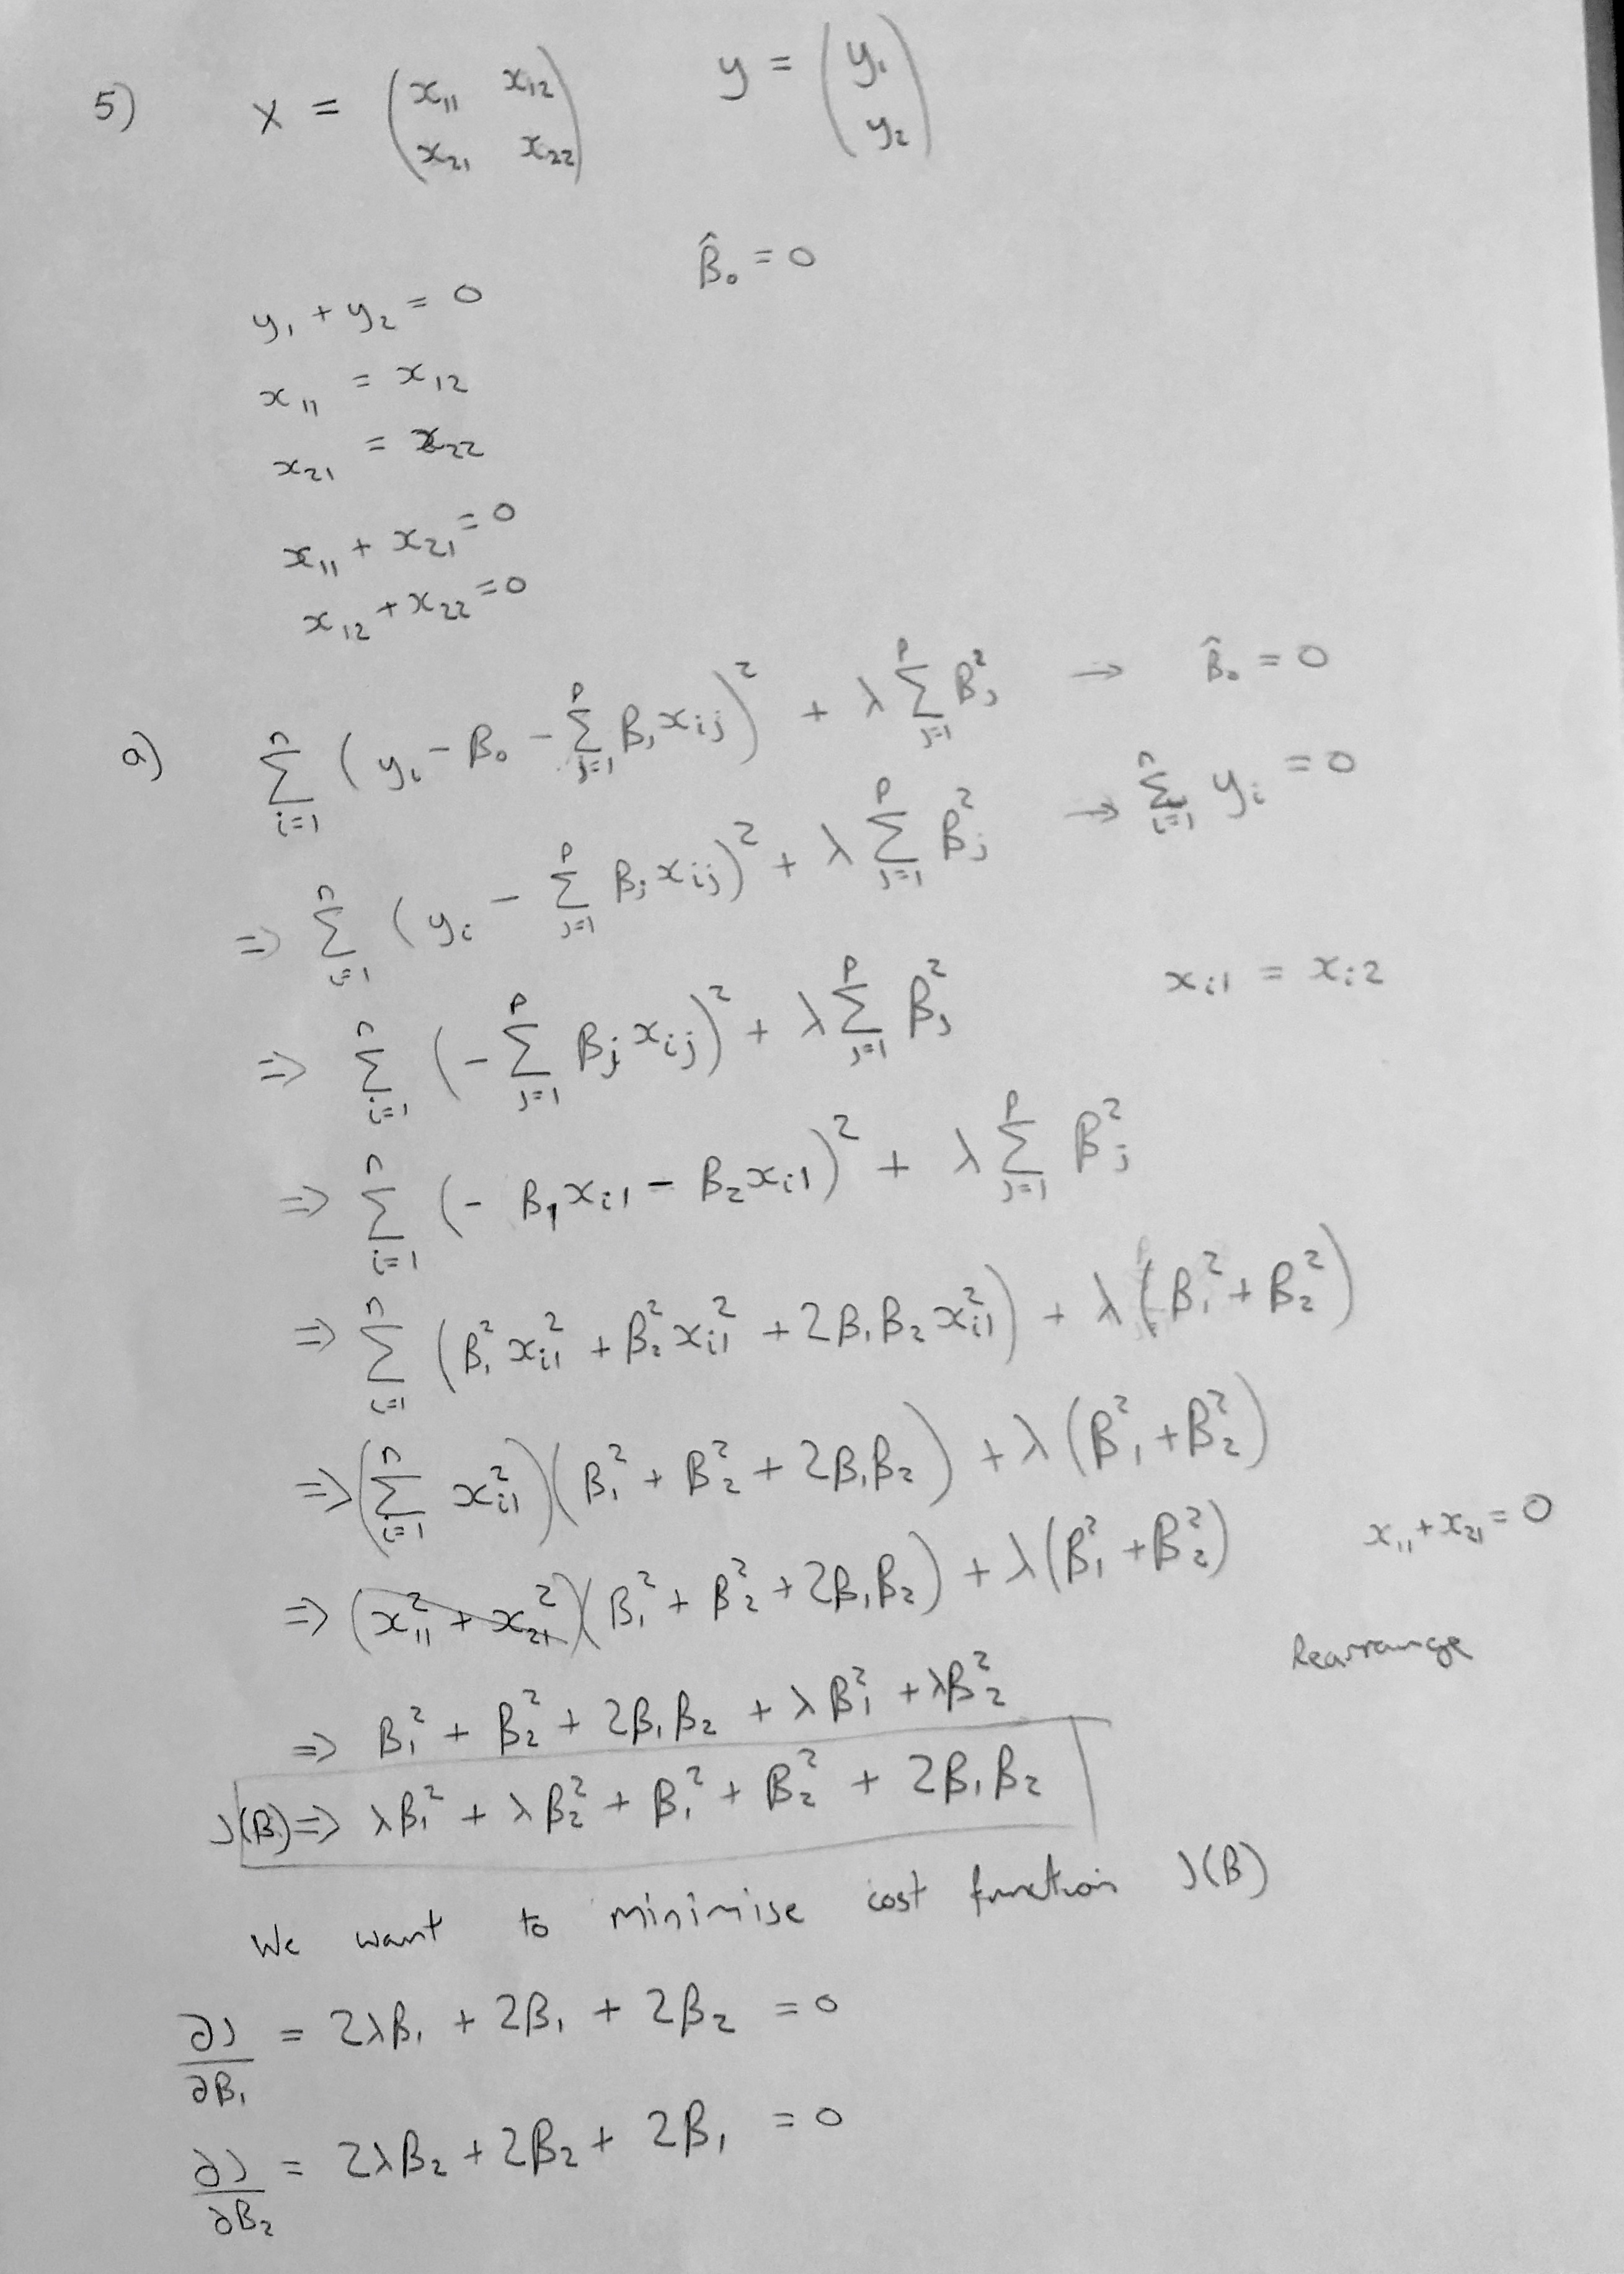 5) X = (x₁₁ x₁₂ y = (y₁
x₂₁ x₂₂) y₂)
β̂₀ = 0
y₁ + y₂ = 0
x₁₁ = x₁₂
x₂₁ = x₂₂
x₁₁ + x₂₁ = 0
x₁₂ + x₂₂ = 0
a) Σᵢ₌₁ⁿ (yᵢ - β₀ - Σⱼ₌₁ᵖ βⱼxᵢⱼ)² + λ Σⱼ₌₁ᵖ βⱼ² → β̂₀ = 0
⇒ Σᵢ₌₁ⁿ (yᵢ - Σⱼ₌₁ᵖ βⱼxᵢⱼ)² + λ Σⱼ₌₁ᵖ βⱼ² → Σᵢ₌₁ⁿ yᵢ = 0
⇒ Σᵢ₌₁ⁿ (- Σⱼ₌₁ᵖ βⱼxᵢⱼ)² + λ Σⱼ₌₁ᵖ βⱼ² xᵢ₁ = xᵢ₂
⇒ Σᵢ₌₁ⁿ (- β₁xᵢ₁ - β₂xᵢ₁)² + λ Σⱼ₌₁ᵖ βⱼ²
⇒ Σᵢ₌₁ⁿ (β₁²xᵢ₁² + β₂²xᵢ₁² + 2β₁β₂xᵢ₁²) + λ(β₁² + β₂²)
⇒ (Σᵢ₌₁ⁿ xᵢ₁²)(β₁² + β₂² + 2β₁β₂) + λ(β₁² + β₂²)
⇒ (x₁₁² + x₂₁²)(β₁² + β₂² + 2β₁β₂) + λ(β₁² + β₂²) x₁₁ + x₂₁ = 0
⇒ β₁² + β₂² + 2β₁β₂ + λβ₁² + λβ₂² Rearrange
J(β) ⇒ λβ₁² + λβ₂² + β₁² + β₂² + 2β₁β₂
We want to minimise cost function J(β)
∂J/∂β₁ = 2λβ₁ + 2β₁ + 2β₂ = 0
∂J/∂β₂ = 2λβ₂ + 2β₂ + 2β₁ = 0